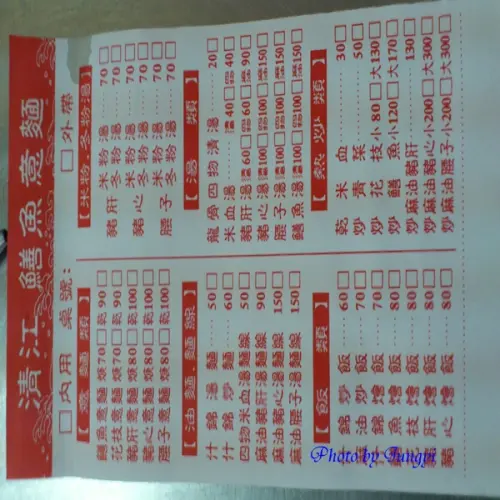 清江 鱔魚意麵
□內用 桌號:
□外帶
【意麵類】
鱔魚意麵 焿70□乾90□
花枝意麵 焿70□乾90□
豬肝意麵 焿80□乾100□
豬心意麵 焿80□乾100□
腰子意麵 焿80□乾100□
【油麵.麵線】
什錦湯麵……50□
什錦炒麵……60□
四物米血湯麵線 50□
麻油豬肝湯麵線 90□
麻油豬心湯麵線 150□
麻油腰子湯麵線 150□
【飯類】
什錦炒飯……60□
炒飯……70□
什錦燴飯……70□
鱔魚燴飯……80□
花枝燴飯……80□
豬肝燴飯……80□
燴飯……80□
【米粉.冬粉湯】
豬肝 米粉湯……70□
冬粉湯……70□
豬心 米粉湯……70□
冬粉湯……70□
腰子 米粉湯……70□
冬粉湯……70□
【湯類】
龍骨四物清湯……20□
米血湯 40□ 40□
豬肝湯 60□ 60□ 90□
豬心湯 100□ 100□ 150□
腰子湯 100□ 100□ 150□
鱔魚湯 100□ 100□ 150□
【熱炒類】
乾米血……30□
炒青菜……50□
炒花枝 小80□大130□
炒鱔魚 小120□大170□
炒麻油豬肝……130□
炒麻油豬心 小200□大300□
炒麻油腰子 小200□大300□
Photo by Jungpi